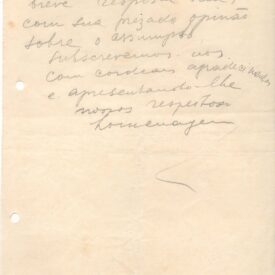 breve resposta
com sua prezada opinião
sobre o assumpto
subscrevemos-nos
com cordeaes agradecimentos
e apresentando-lhe
nossos respeitosos
homenagens